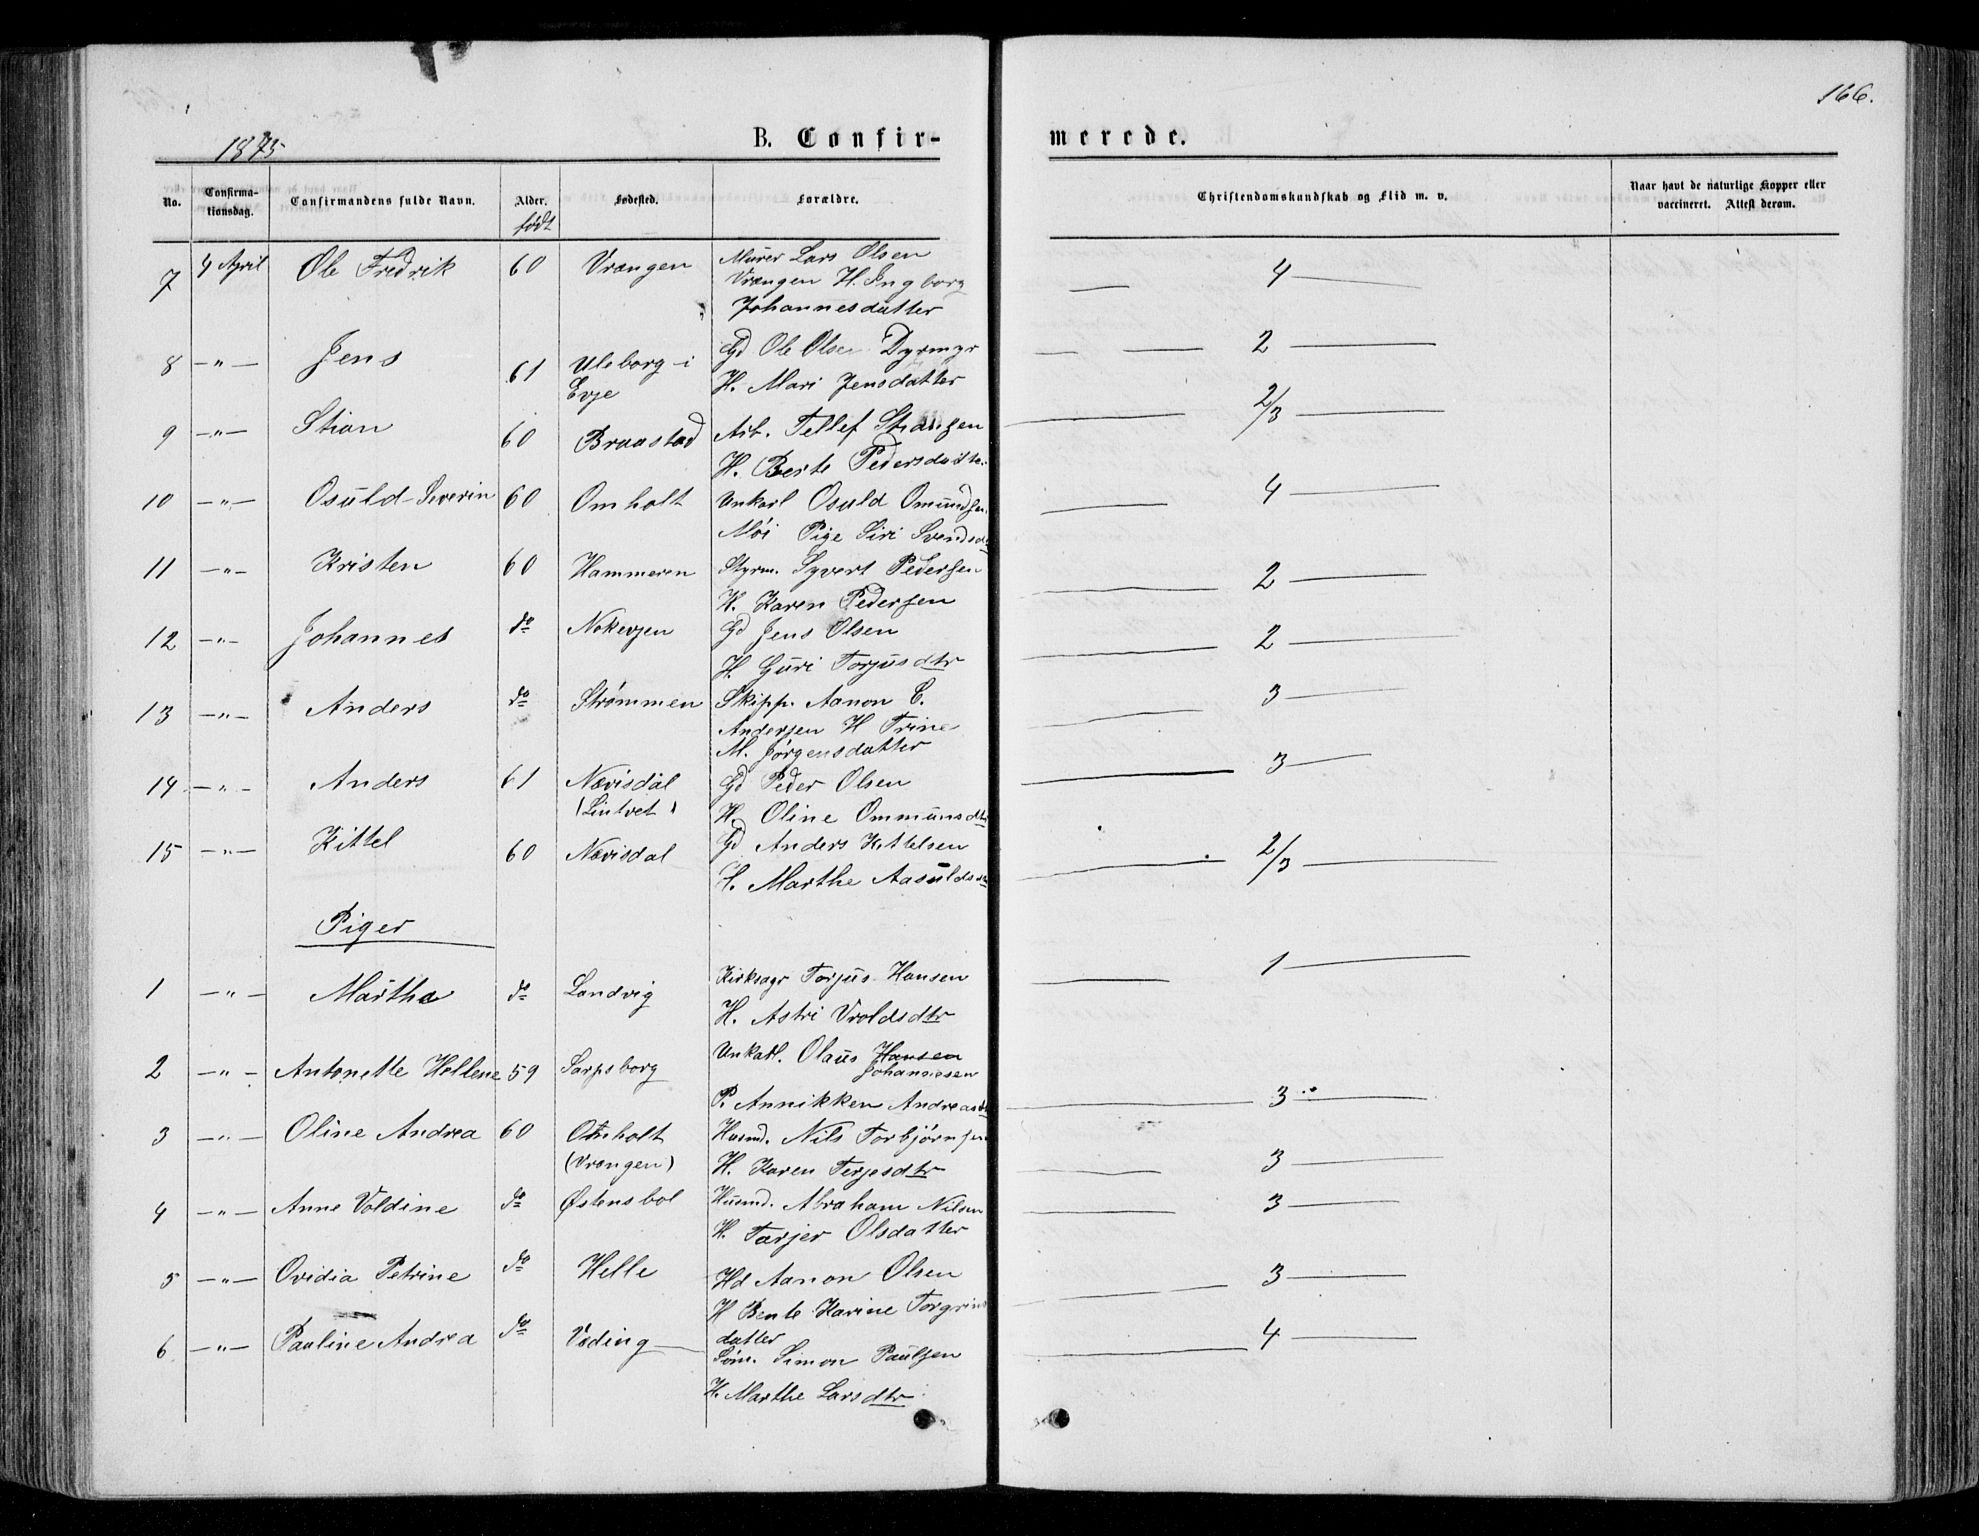 166.
1875
B. Confirmerede.
No. Confirmationsdag. Confirmandens fulde Navn. Alder. født Fødested. Forældre. Christendomskundskab og Flid m. v. Naar havt de naturlige Kopper eller vaccineret. Attest derom.
7 4 April Ole Fredrik 60 Vrangen Murer Lars Olsen 4
Vrangen H. Ingborg
Johannesdatter
8 -"- Jens 61 Uleborg i Gd Ole Olsen Dyrmyr 2
Evje H. Mari Jensdatter
9 -"- Stian 60 Braastad Arb. Tellef Stiansen 2/3
H. Berte Pedersdatter
10 -"- Osuld Severin 60 Omholt Unkarl Osuld Omundsen 4
Møi Pige Siri Svends
11 -"- Kristen 60 Hammeren Styrm. Syvert Pedersen 2
H. Karen Pedersen
12 -"- Johannes do Nokevjen Gd Jens Olsen 2
H. Guri Torjusdtr
13 -"- Anders do Strømmen Skipp. Aanon C. 3
Andersen H Trine
M. Jørgensdatter
14 -"- Anders 61 Nævisdal Gd Peder Olsen 3
(Lintvet) H. Oline Ommunsdtr
15 -"- Kittel 60 Nævisdal Gd Anders Kittelsen 2/3
H. Marthe Aasulds
Piger
1 -"- Martha do Landvig Kirksagr Torjus Hansen 1
H. Astri Vroldsdtr
2 -"- Antonette Hellene 59 Sarpsborg Unkarl. Olaus Hansen
Johannesen
P. Annikken Andreasd 3
3 -"- Oline Andrea 60 Omholt Husmd. Nils Torbjørnsen
(Vrangen) H. Karen Terjesdtr 3
4 -"- Anne Valdine do Østensbol Husmd. Abraham Nilsen 3
H. Tarjer Olsdatter
5 -"- Ovidia Petrine do Helle Hd Aanon Olsen 3
H Bente Karine Torgrins
datter
6 -"- Pauline Andrea do Væding Søm. Simon Paulsen 4
H. Marthe Larsdtr